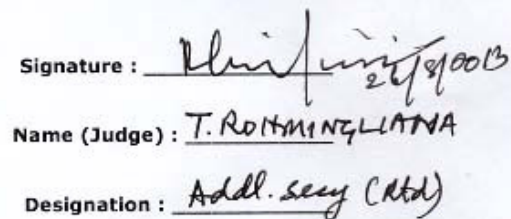 Signature :
Name (Judge) : T. ROHMINGLIANA
Designation : Addl. Secy (Rtd)